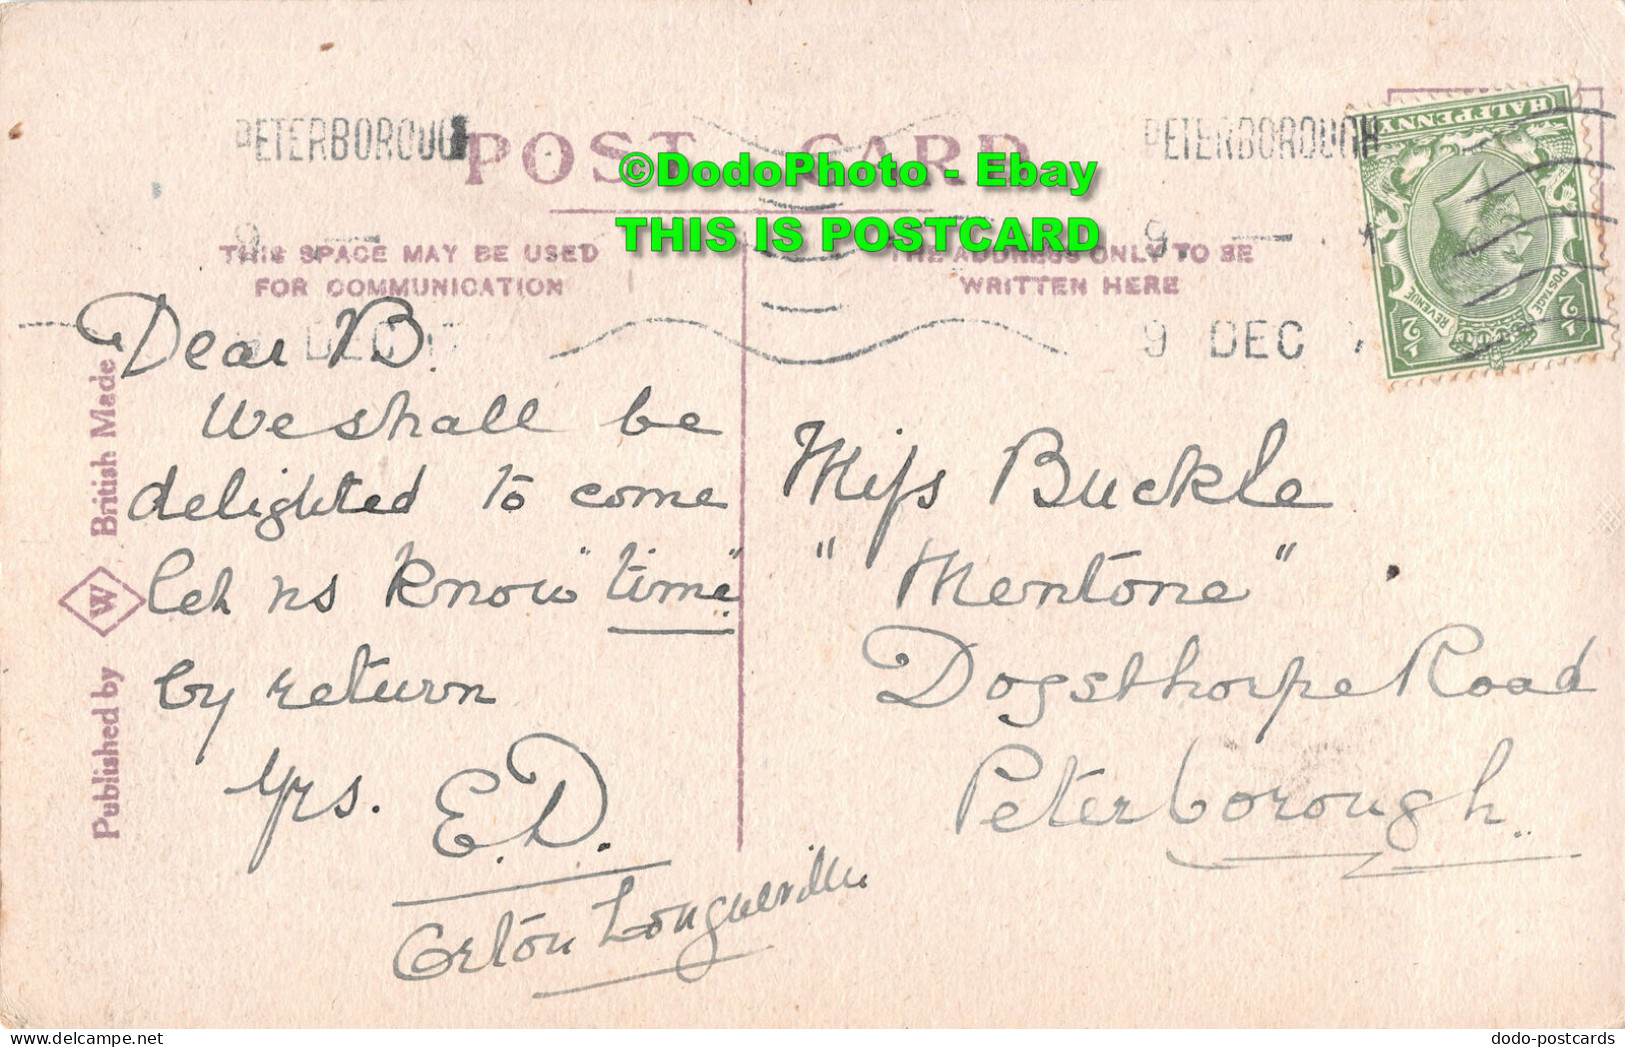 PETERBOROUGH
POST CARD
PETERBOROUGH
©DodoPhoto - Ebay
THIS IS POSTCARD
HALFPENNY
REVENUE
POSTAGE
½
½
9
9
THIS SPACE MAY BE USED
FOR COMMUNICATION
THE ADDRESS ONLY TO BE
WRITTEN HERE
DEC
9 DEC
Dear B.
We shall be
delighted to come
let us know "time"
by return
Yrs. E.D.
Orton Longueville
Miss Buckle
"Mentone"
Dogsthorpe Road
Peterborough
Published by W British Made
dodo-postcards